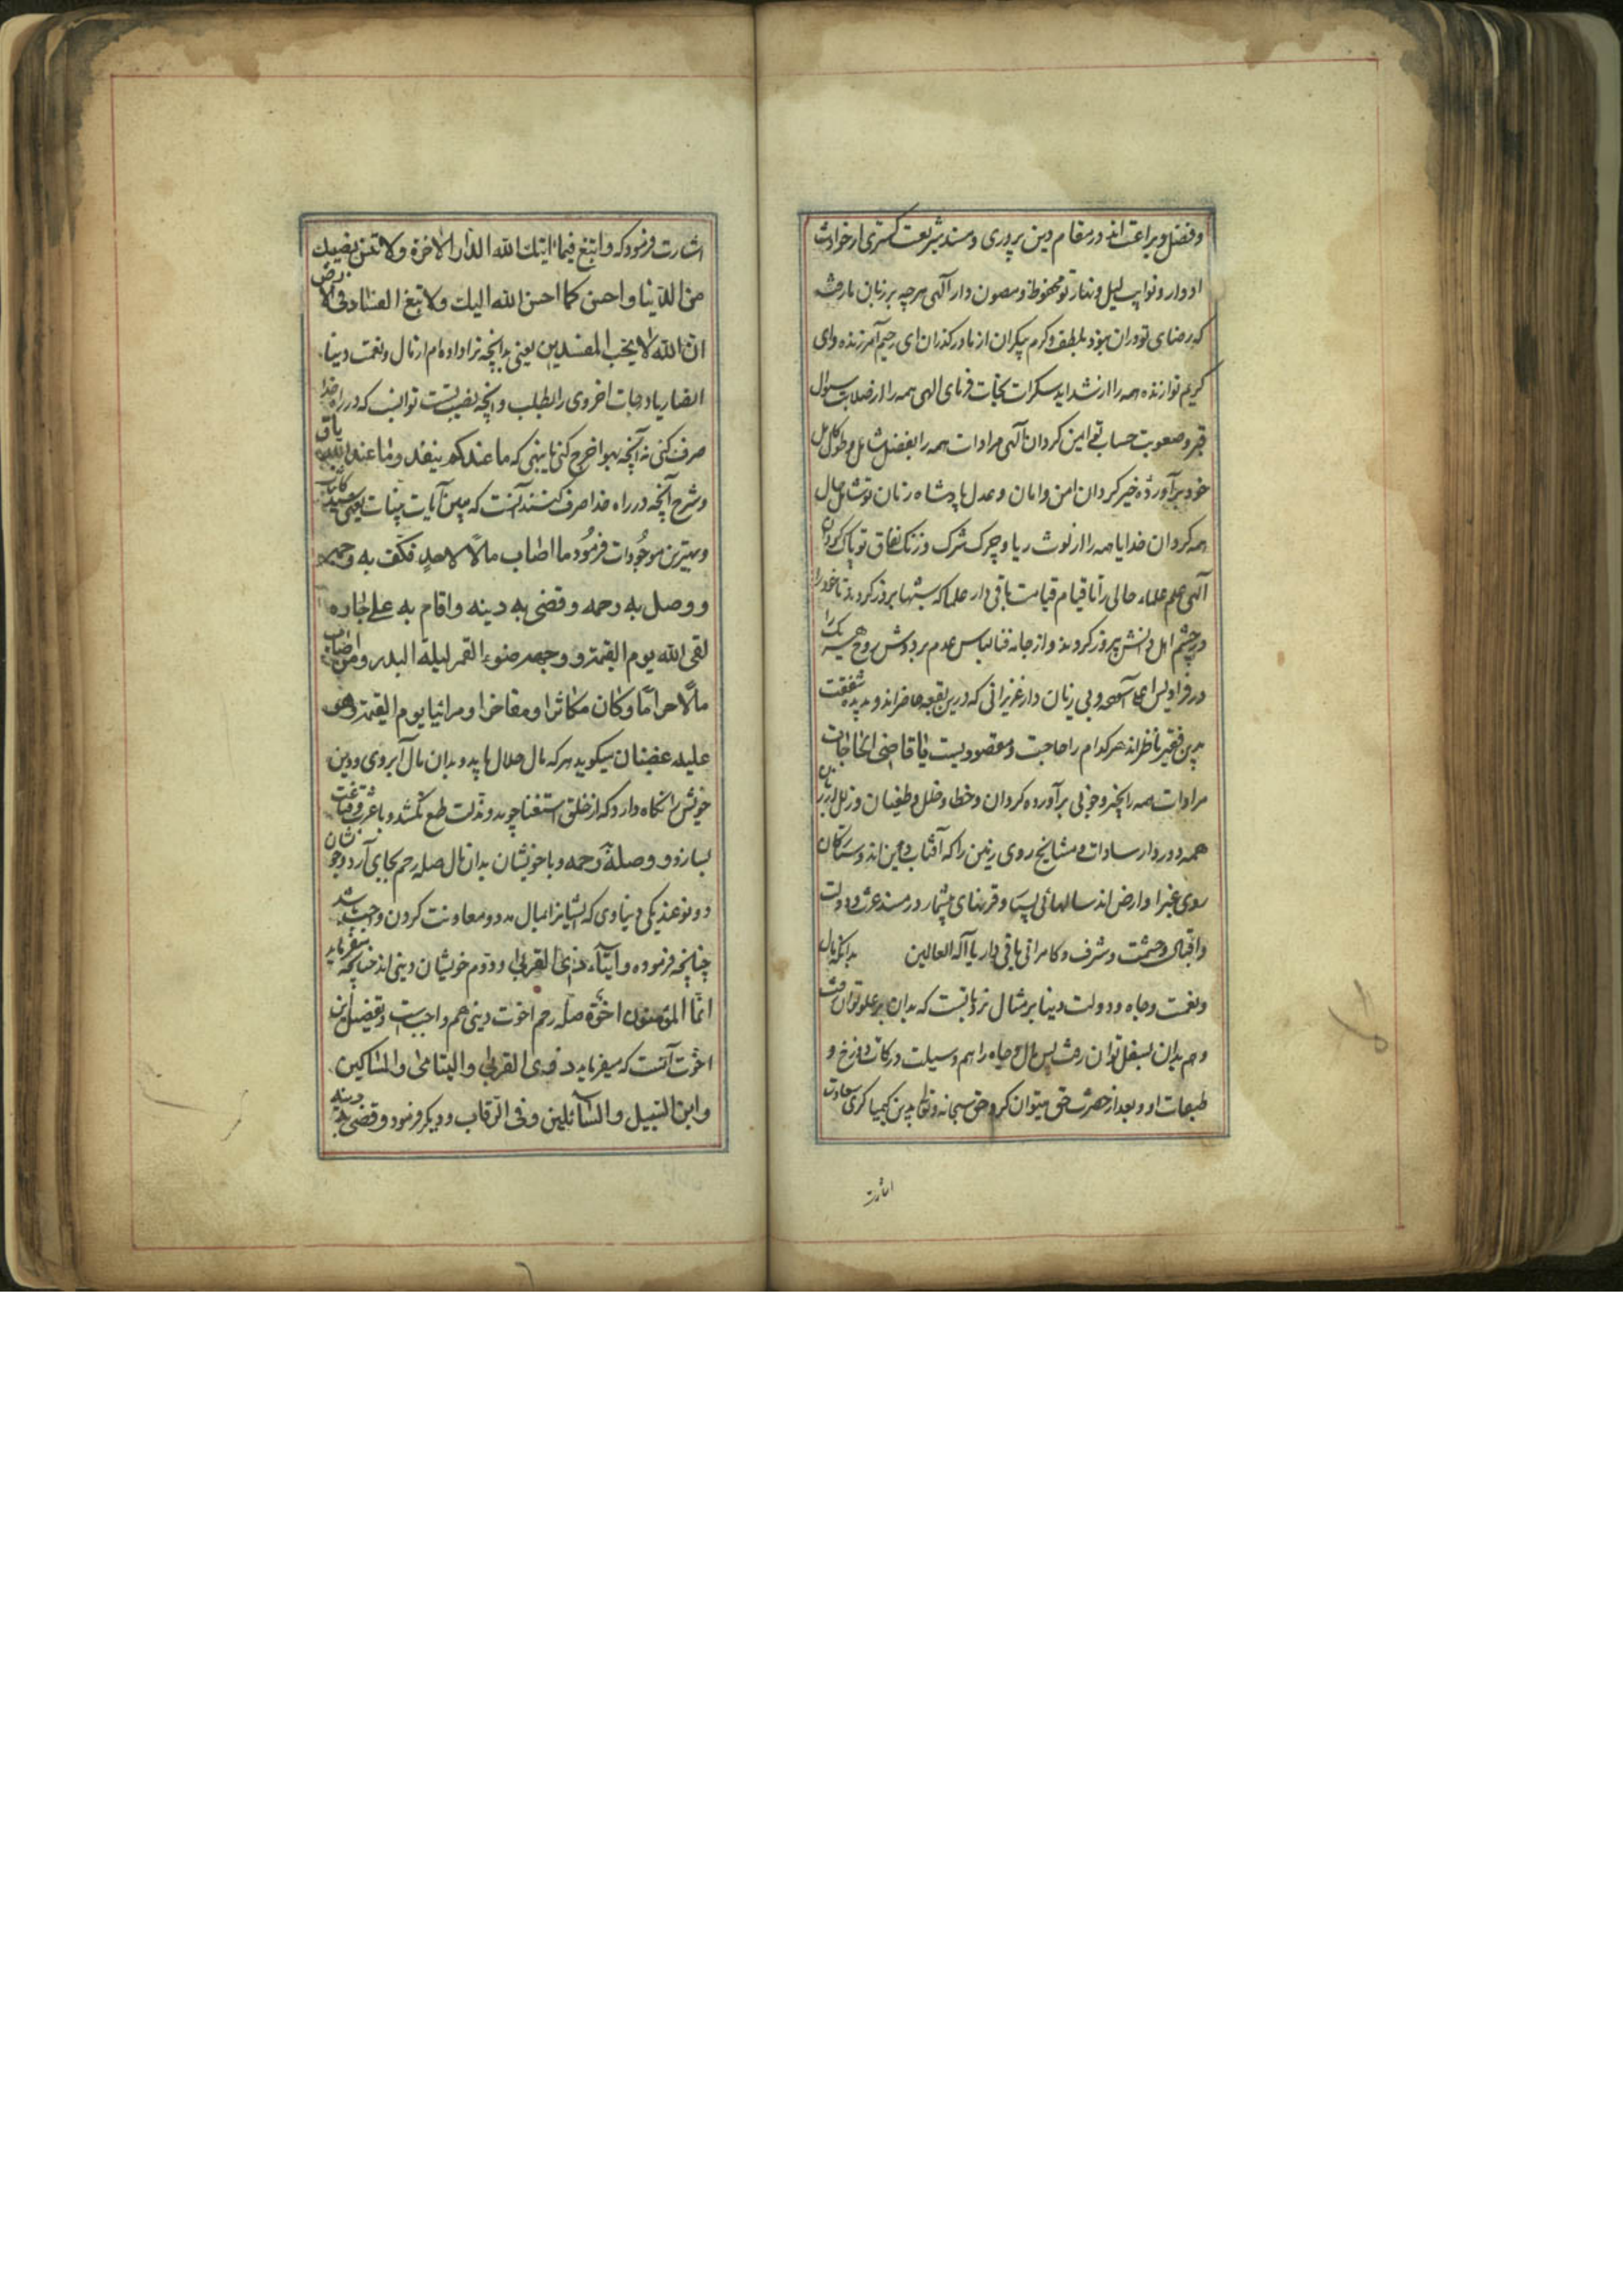 و فضل و براعت اند در مقام دین پروری و مسند شریعت کستری از حوادث
ادوار و نوایب لیل و نهار تو محفوظ و مصون دار آلهی هرچه بر زبان ما رفت
که رضای تو دران نبود بلطف و کرم بیکران از ما در کذران ای رحیم آمرزنده و ای
کریم نوازنده همه را از شداید سکرات نجات فرمای الهی همه را از صلابت سوال
قبر و صعوبت حساب تو امین کردان آلهی مرادات همه را بفضل شامل و طول کامل
خود برآورده خیر کردان امن و امان و عدل پادشاه زمان تو شامل حال
همه کردان خدایا همه را از لوث ریا و چرک شرک و زنک نفاق تو پاک کردان
آلهی علم علماء حالی را تا قیام قیامت باقی دار علما که شبها بروز کردند تا خود را
در چشم اهل دانش پیروز کردند و از جامه فنا لباس عدم بر دوش روح هر یک را
در فرادیس اعلی آسوده و بی زیان دار عزیزانی که درین بقعه حاضراند و بدیده شفقت
بدین فقیر ناظراند هر کدام را حاجت و مقصودیست یا قاضی الحاجات
مرادات همه را بخیر و خوبی برآورده کردان و خطا و خلل و طغیان و زلل از زبان
همه دور دار سادات و مشایخ روی زمین را که آفتاب دین اند و ستارکان
روی غبرا و ارض اند سالهای بس و قرنهای بیشمار در مسند عزت و دولت
و اقبال و حشمت و شرف و کامرانی باقی دار یا آله العالمین بدانکه مال
و نعمت و جاه و دولت دنیا بر مثال نردبانست که بدان بر علو توان رفت
و هم بدان بسفل توان رفت پس مال و جاه را هم وسیلت درکات دوزخ و
طبقات او و بعد از حضرت حق میتوان کرد حق سبحانه و تعالی بدین کیمیا کری سعادت
اشارت
اشارت فرمود که وابتغ فیما اتیك الله الدار الاخرة ولا تنس نصیبك
من الدنیا واحسن کما احسن الله الیك ولا تبغ الفساد فی الارض
ان الله لا یحب المفسدین یعنی بدانچه ترا داده ام از مال و نعمت دنیا
صرف کنی نه آنچه بهوا خرج کنی تا بینی که ما عندکم ینفد وما عند الله باق
و شرح آنچه در راه خدا صرف کنند آنست که مبین آیات بینات یعنی سید کاینات
و بهترین موجودات فرمود ما اصاب مالا فکف به وجهه
ووصل به رحمه وقضی به دینه واقام به علی جاره
لقی الله یوم القیمة ووجهه ضوء القمر لیلة البدر ومن اصاب
مالا حراما وکان مکاثرا ومفاخرا ومرائیا یوم القیمة وهو
علیه غضبان میکوید هر که مال حلال یابد و بدان مال آبروی و دین
خویش را نکاه دارد که از خلق استغنا جوید و مذلت طمع نکشد و با عزت و قناعت
بسازد و وصله رحمه و با خویشان بدان مال صله رحم بجای آرد و خویشان
دو نوعند یکی دنیاوی که ایشانرا بمال مدد و معاونت کردن واجب شد
چنانچه فرموده وایتاء ذی القربی و دوم خویشان دینی اند چنانچه میفرماید
انما المؤمنون اخوة صله رحم اخوت دینی هم واجبست و تفضیل این
اخوت آنست که میفرماید ذوی القربی والیتامی والمساکین
وابن السبیل والسائلین وفی الرقاب و دیکر فرمود وقضی به دینه